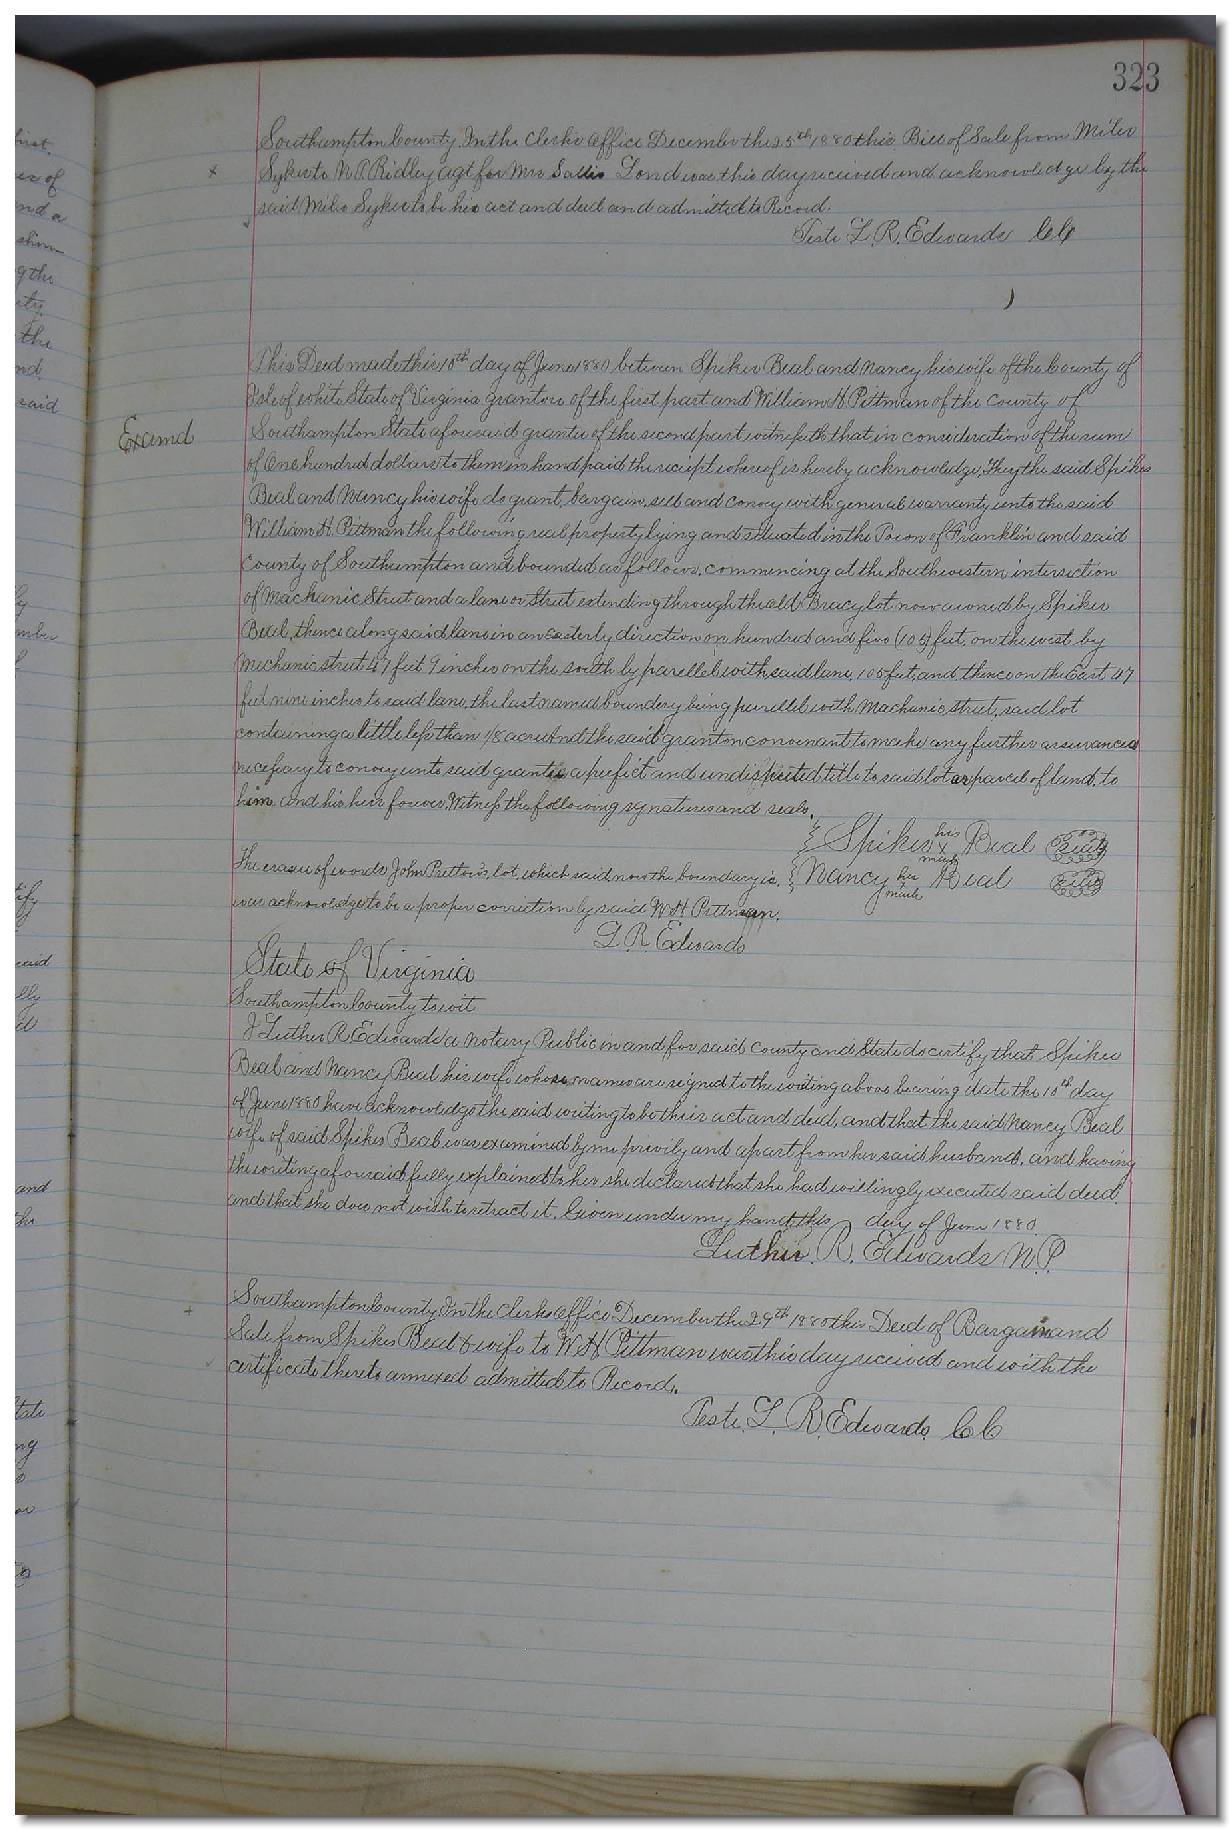 323
Southampton County In the Clerks Office December the 25th 1880 this Bill of Sale from Miles
Sykes to N P Ridley agt for Mrs Sallie was this day received and acknowledge by the
said Miles Sykes to be his act and deed and admitted to Record.
Teste L. R. Edwards CC
This Deed made this 10th day of June 1880 between Spikes Beal and Nancy his wife of the County of
Isle of white State of Virginia grantors of the first part and William H Pittman of the County of
Examd
Southampton State aforesaid grantee of the second part witnesseth that in consideration of the sum
of One hundred dollars to them in hand paid the reciept whereof is hereby acknowledge, They the said Spikes
Beal and Nancy his wife do grant, bargain, sell and convey with general warranty unto the said
William H. Pittman the following real property lying and situated in the Town of Franklin and said
County of Southampton and bounded as follows, commencing at the Southwestern intersection
of Machanic Street and a lane or Street extending through the old Bracy lot now owned by Spikes
Beal, thence along said lane in an easterly direction on hundred and five (105) feet, on the west by
Mechanic street 47 feet 9 inches on the south by parellel with said lane, 105 feet, and thence on the East 47
feet nine inches to said lane, the last named boundery being parellel with Machanic street, said lot
containing a little less than 1/8 acre And the said grantors convenant to make any further assurances
necessary to convey unto said grantee a perfict and undisputed title to said lot or parcel of land, to
him and his heirs forever. Witness the following signatures and seals.
Spikes his x mark Beal Seal
The erasure of words John Pretlow's lot, which said, now the boundary is,
Nancy her mark Beal Seal
was acknowledged to be a proper correction by said W H Pittman.
L. R. Edwards
State of Virginia
Southampton County to wit
I Luther R Edwards a Notary Public in and for said County and State do certify that Spikes
Beal and Nancy Beal his wife whose names are signed to the writing above bearing date the 10th day
of June 1880 have acknowledge the said writing to be their act and deed, and that the said Nancy Beal
wife of said Spikes Beal was examined by me privily and apart from her said husband, and having
the writing aforesaid fully explained to her she declared that she had willingly executed said deed
and that she does not wish to retract it. Given under my hand this day of June 1880
Luther R. Edwards N.P.
Southampton County In the Clerks Office December the 29th 1880 this Deed of Bargain and
Sale from Spikes Beal & wife to W H Pittman was this day received and with the
certificate thereto annexed admitted to Record.
Teste L. R. Edwards CC